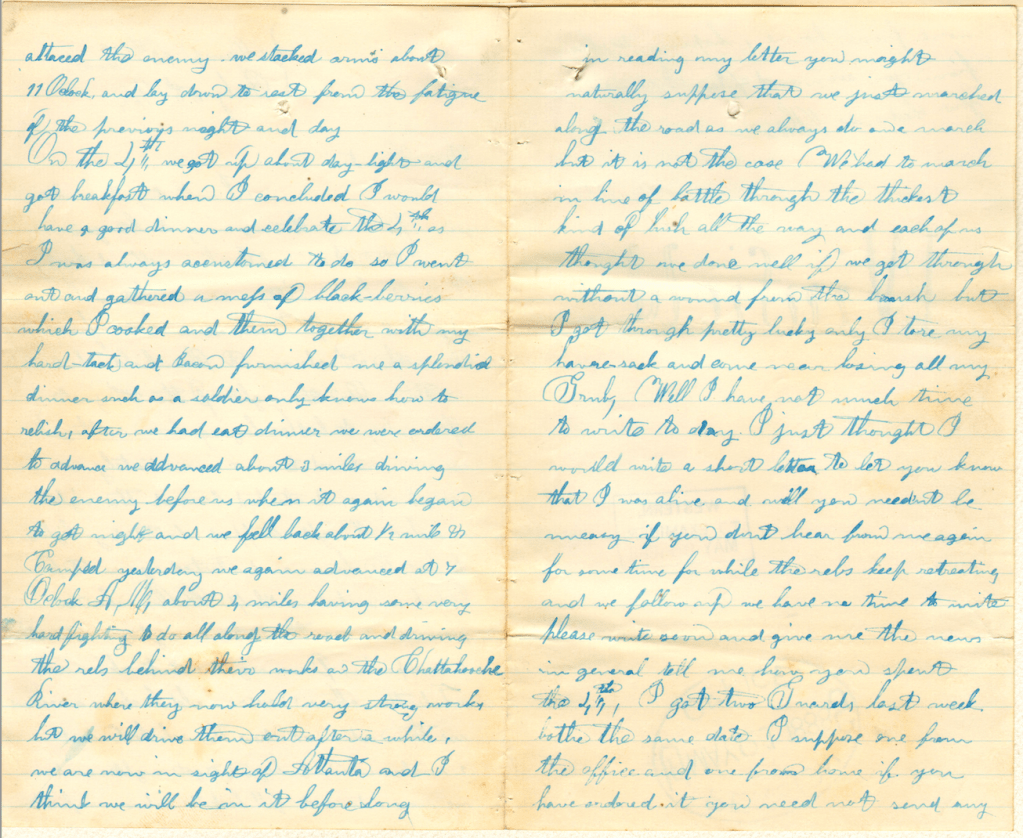 attaced the enemy. we stacked arms about
11 Oclock, and lay down to rest from the fatigue
of the previous night and day
On the 4th, we got up about day-light and
got breakfast when I concluded I would
have a good dinner and celebrate the 4th, as
I was always accustomed to do so I went
out and gathered a mess of black-berries
which I cooked and them together with my
hard-tack and Bacon furnished me a splendid
dinner such as a soldier only knows how to
relish, after we had eat dinner we were ordered
to advance we advanced about 3 miles driving
the enemy before us when it again began
to get night and we fell back about 1/2 mile &
Camped yesterday we again advanced at 7
Oclock A,M, about 4 miles having some very
hard fighting to do all along the road and driving
the rebs behind their works on the Chattahooche
River where they now hold very strong works,
but we will drive them out after a while,
we are now in sight of Attanta and I
think we will be in it before long
in reading my letter you might
naturally suppose that we just marched
along the road as we always do on a march
but it is not the case We had to march
in line of battle through the thickest
kind of bush all the way and each of us
thought we done well if we got through
without a wound from the brush but
I got through pretty lucky only I tore my
haver-sack and come near losing all my
Grub, Well I have not much time
to write to day I just thought I
would write a short letter to let you know
that I was alive and well you needent be
uneasy if you dont hear from me again
for some time for while the rebs keep retreating
and we follow up we have no time to write
please write soon and give me the news
in general tell me how you spent
the 4th, I got two Wards, last week
bothe the same date I suppose one from
the office and one from home if you
have ordered it you need not send any